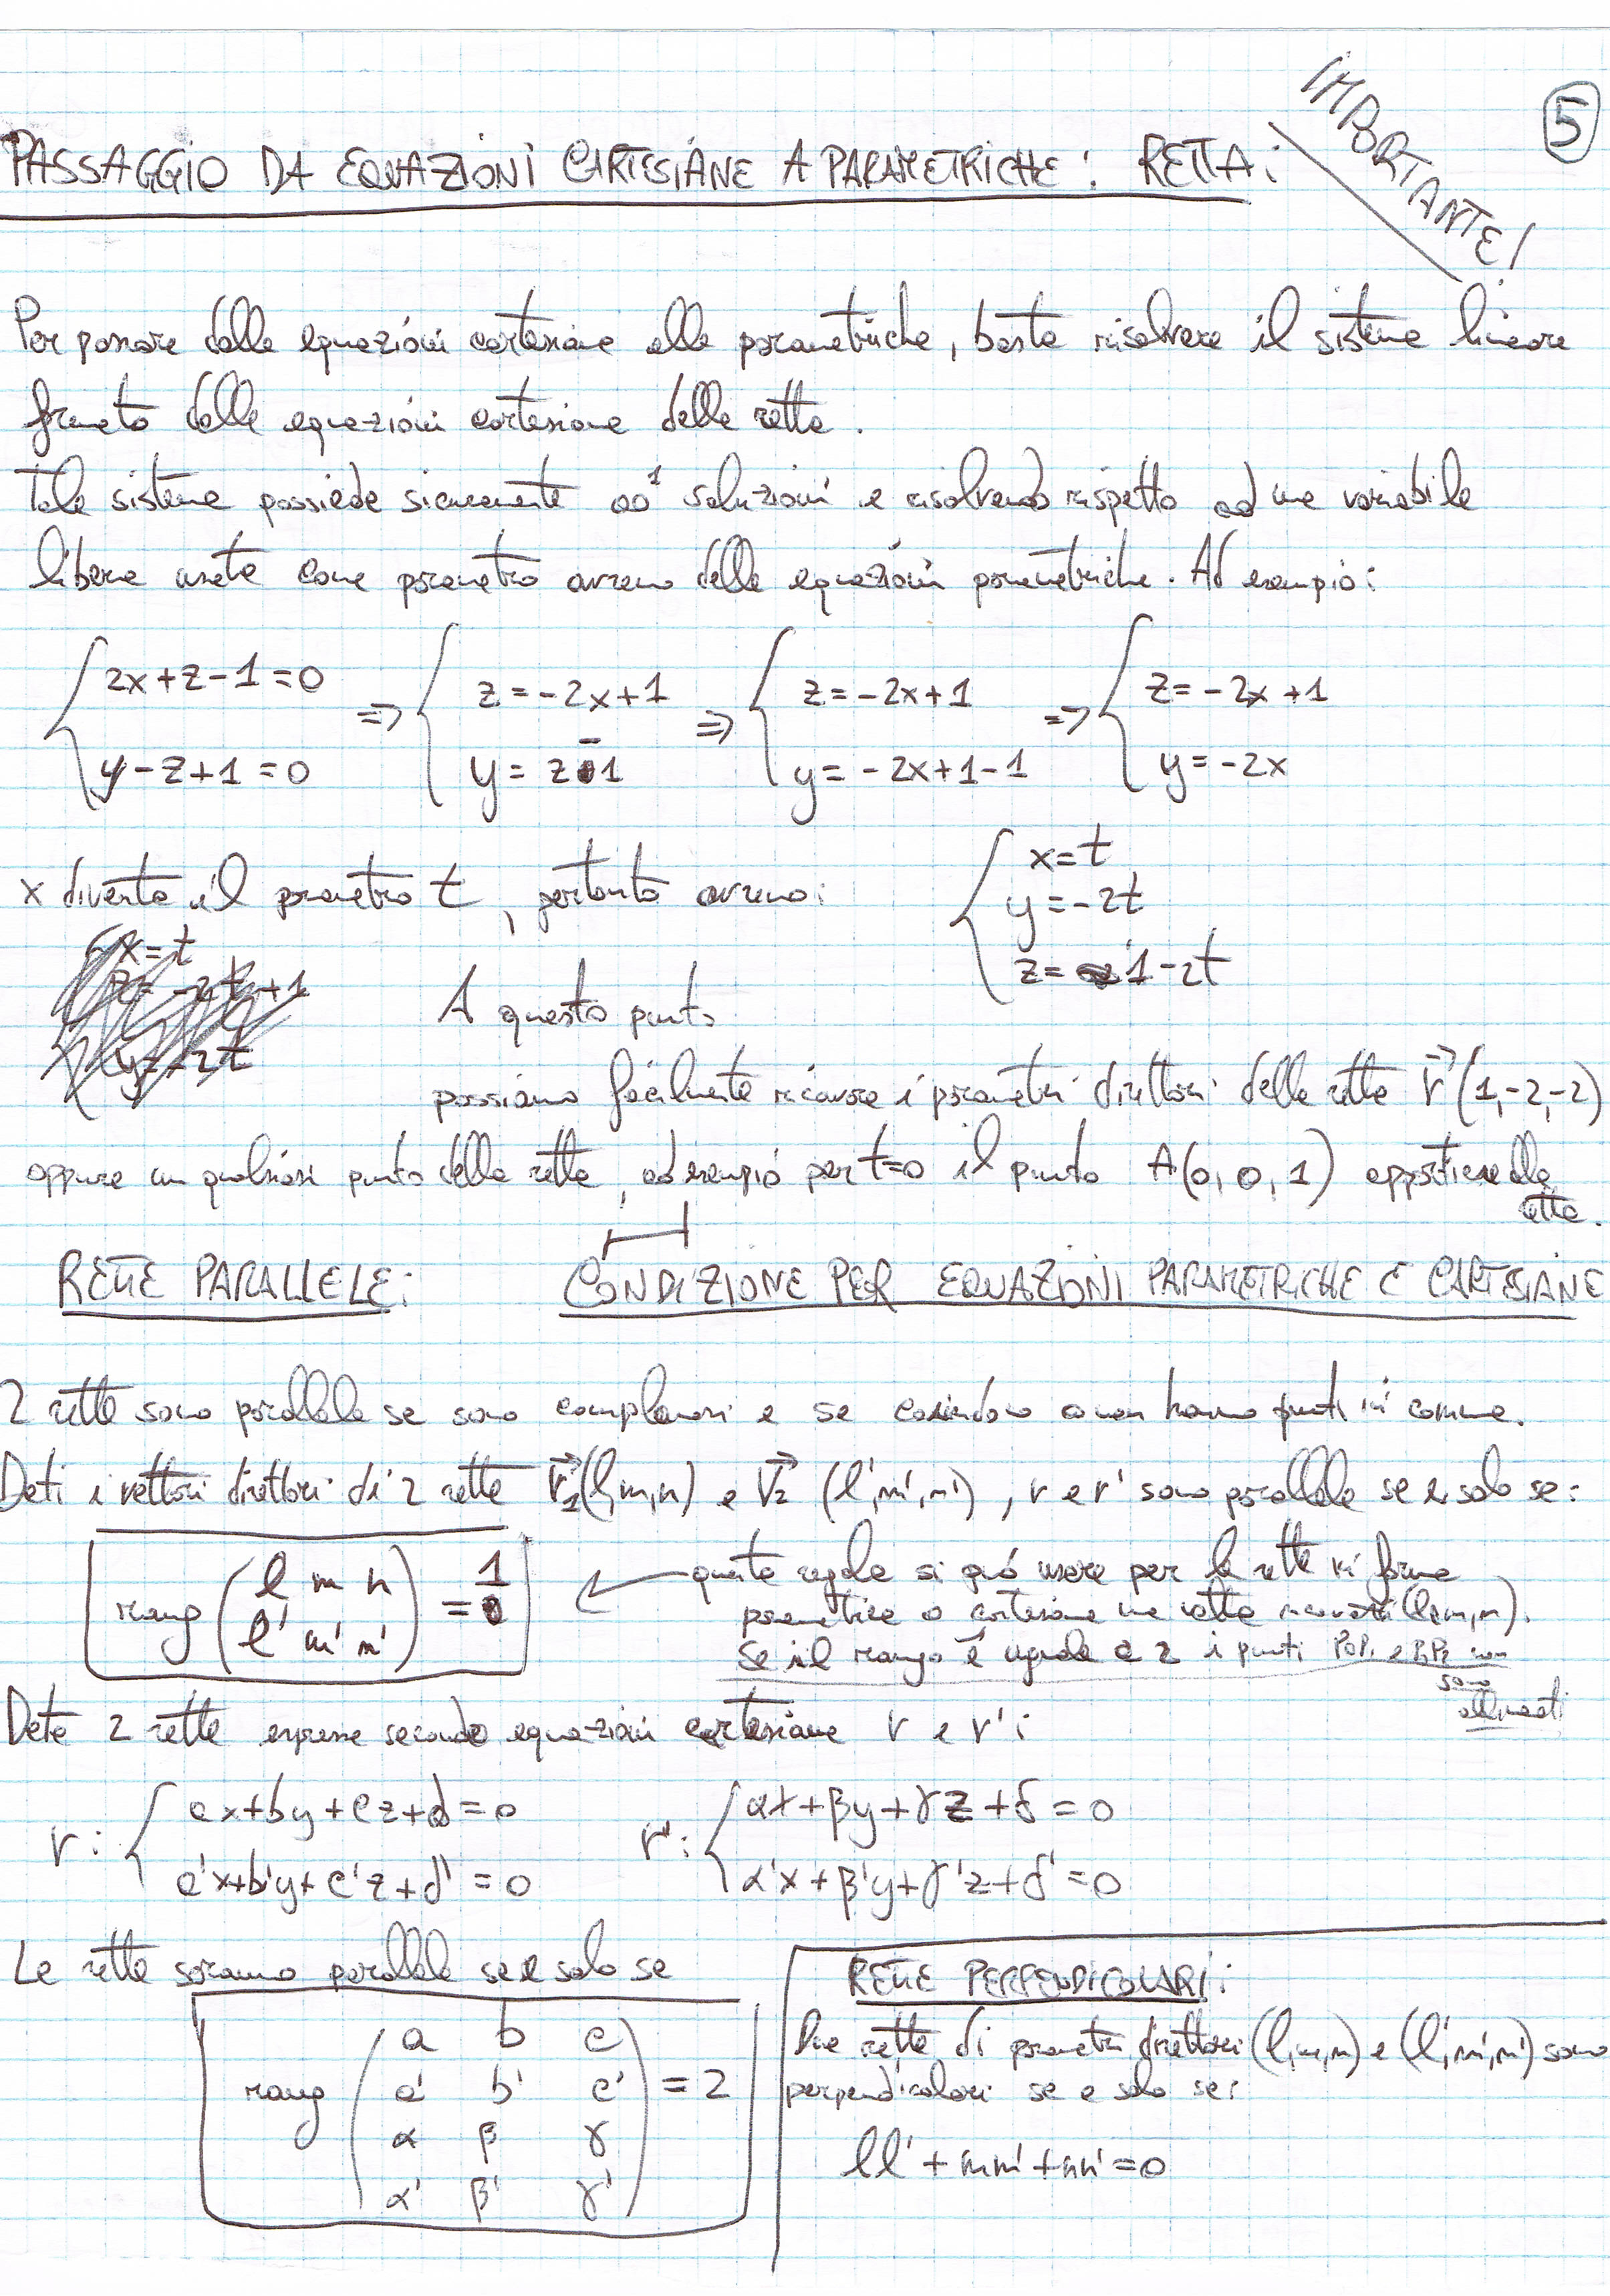 IMPORTANTE!
5
PASSAGGIO DA EQUAZIONI CARTESIANE A PARAMETRICHE: RETTA:
Per passare dalle equazioni cartesiane alle parametriche, basta risolvere il sistema lineare
formato dalle equazioni cartesiane della retta.
Tale sistema possiede sicuramente ∞¹ soluzioni e risolvendo rispetto ad una variabile
libera usata come parametro avremo delle equazioni parametriche. Ad esempio:
{ 2x+z-1=0 => { z=-2x+1 => { z=-2x+1 => { z=-2x+1
y-z+1=0 y=z-1 y=-2x+1-1 y=-2x
x diventa il parametro t, pertanto avremo: { x=t
y=-2t
z=1-2t
x=t
z=-2t+1
y=-2t
A questo punto
possiamo facilmente ricavare i parametri direttori della retta v⃗(1,-2,-2)
oppure un qualsiasi punto della retta, ad esempio per t=0 il punto A(0,0,1) appartiene alla
retta.
RETTE PARALLELE: CONDIZIONE PER EQUAZIONI PARAMETRICHE E CARTESIANE
2 rette sono parallele se sono complanari e se coincidono o non hanno punti in comune.
Dati i vettori direttori di 2 rette v⃗₁(l,m,n) e v⃗₂ (l',m',n'), r e r' sono parallele se e solo se:
rang ( l m n
l' m' n' ) = 1
questa regola si può usare per le rette in forma
parametrica o cartesiana una volta ricavati (l,m,n).
Se il rango è uguale a 2 i punti P0P1 e P1P2 non
sono
allineati
Date 2 rette espresse secondo equazioni cartesiane r e r':
r: { ax+by+cz+d=0 r': { αx+βy+γz+δ=0
a'x+b'y+c'z+d'=0 α'x+β'y+γ'z+δ'=0
Le rette saranno parallele se e solo se
rang ( a b c
a' b' c'
α β γ
α' β' γ' ) = 2
RETTE PERPENDICOLARI:
Due rette di parametri direttori (l,m,n) e (l',m',n') sono
perpendicolari se e solo se:
ll'+mm'+nn'=0